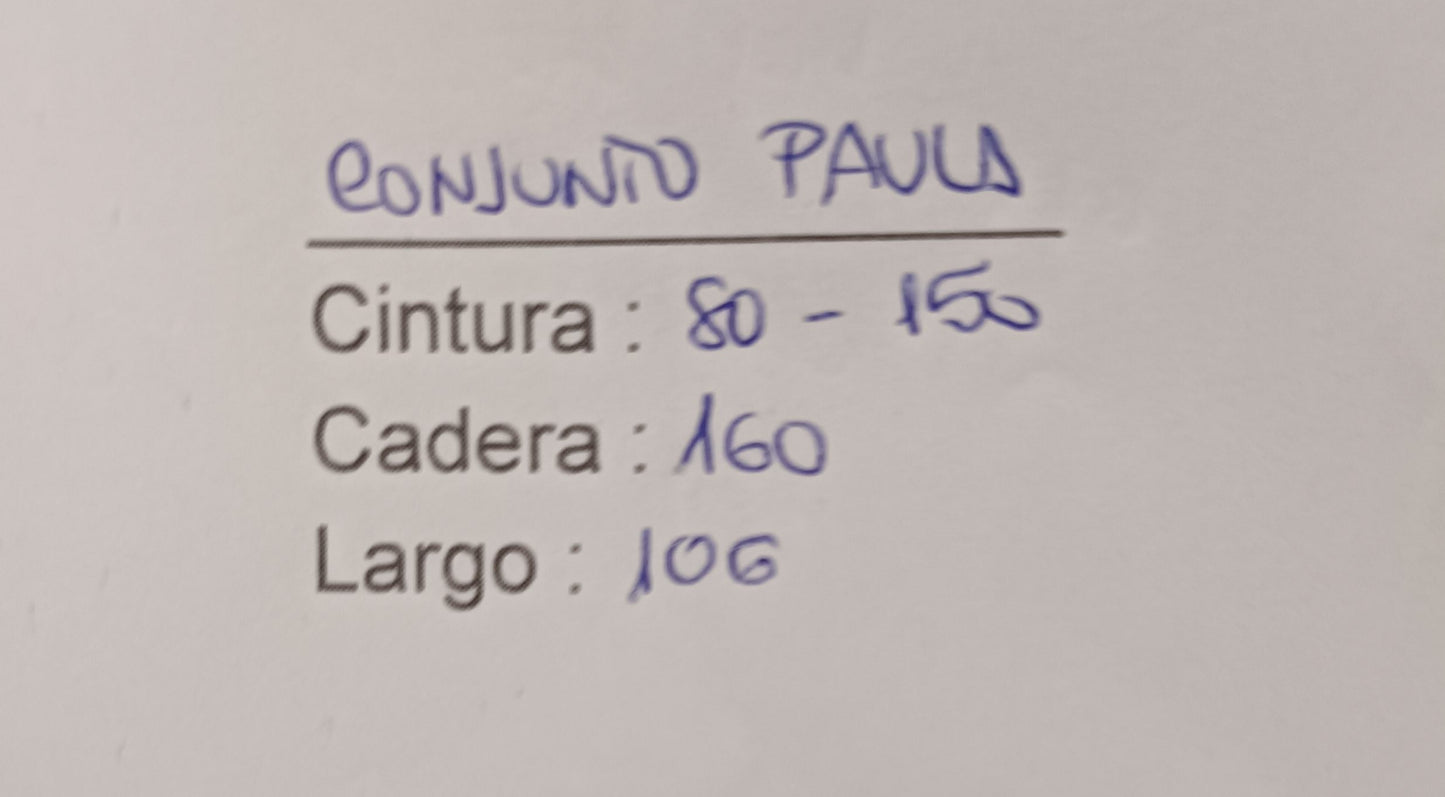 CONJUNTO PAULA
Cintura : 80 - 150
Cadera : 160
Largo : 106